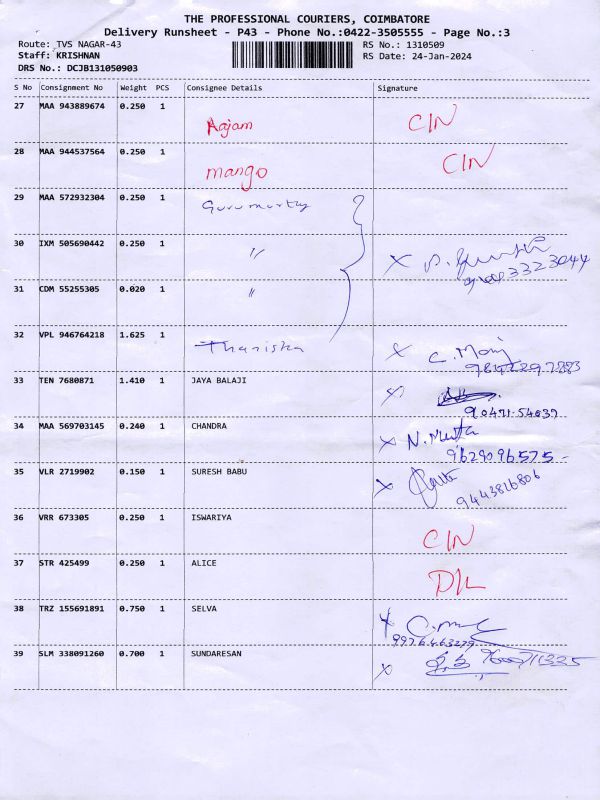 THE PROFESSIONAL COURIERS, COIMBATORE
Delivery Runsheet - P43 - Phone No.:0422-3505555 - Page No.:3
Route: TVS NAGAR-43 RS No.: 1310509
Staff: KRISHNAN RS Date: 24-Jan-2024
DRS No.: DCJB131050903
S No Consignment No Weight PCS Consignee Details Signature
27 MAA 943889674 0.250 1 Rajam CIN
28 MAA 944537564 0.250 1 mango CIN
29 MAA 572932304 0.250 1 Gurumurthy
30 IXM 505690442 0.250 1 "
31 CDM 55255305 0.020 1 "
32 VPL 946764218 1.625 1 Thanishka C. Mani
33 TEN 7680871 1.410 1 JAYA BALAJI
90471.54037
34 MAA 569703145 0.240 1 CHANDRA
9629096575-
35 VLR 2719902 0.150 1 SURESH BABU
9443816806
36 VRR 673305 0.250 1 ISWARIYA CIN
37 STR 425499 0.250 1 ALICE D/L
38 TRZ 155691891 0.750 1 SELVA
9976463279
39 SLM 338091260 0.700 1 SUNDARESAN